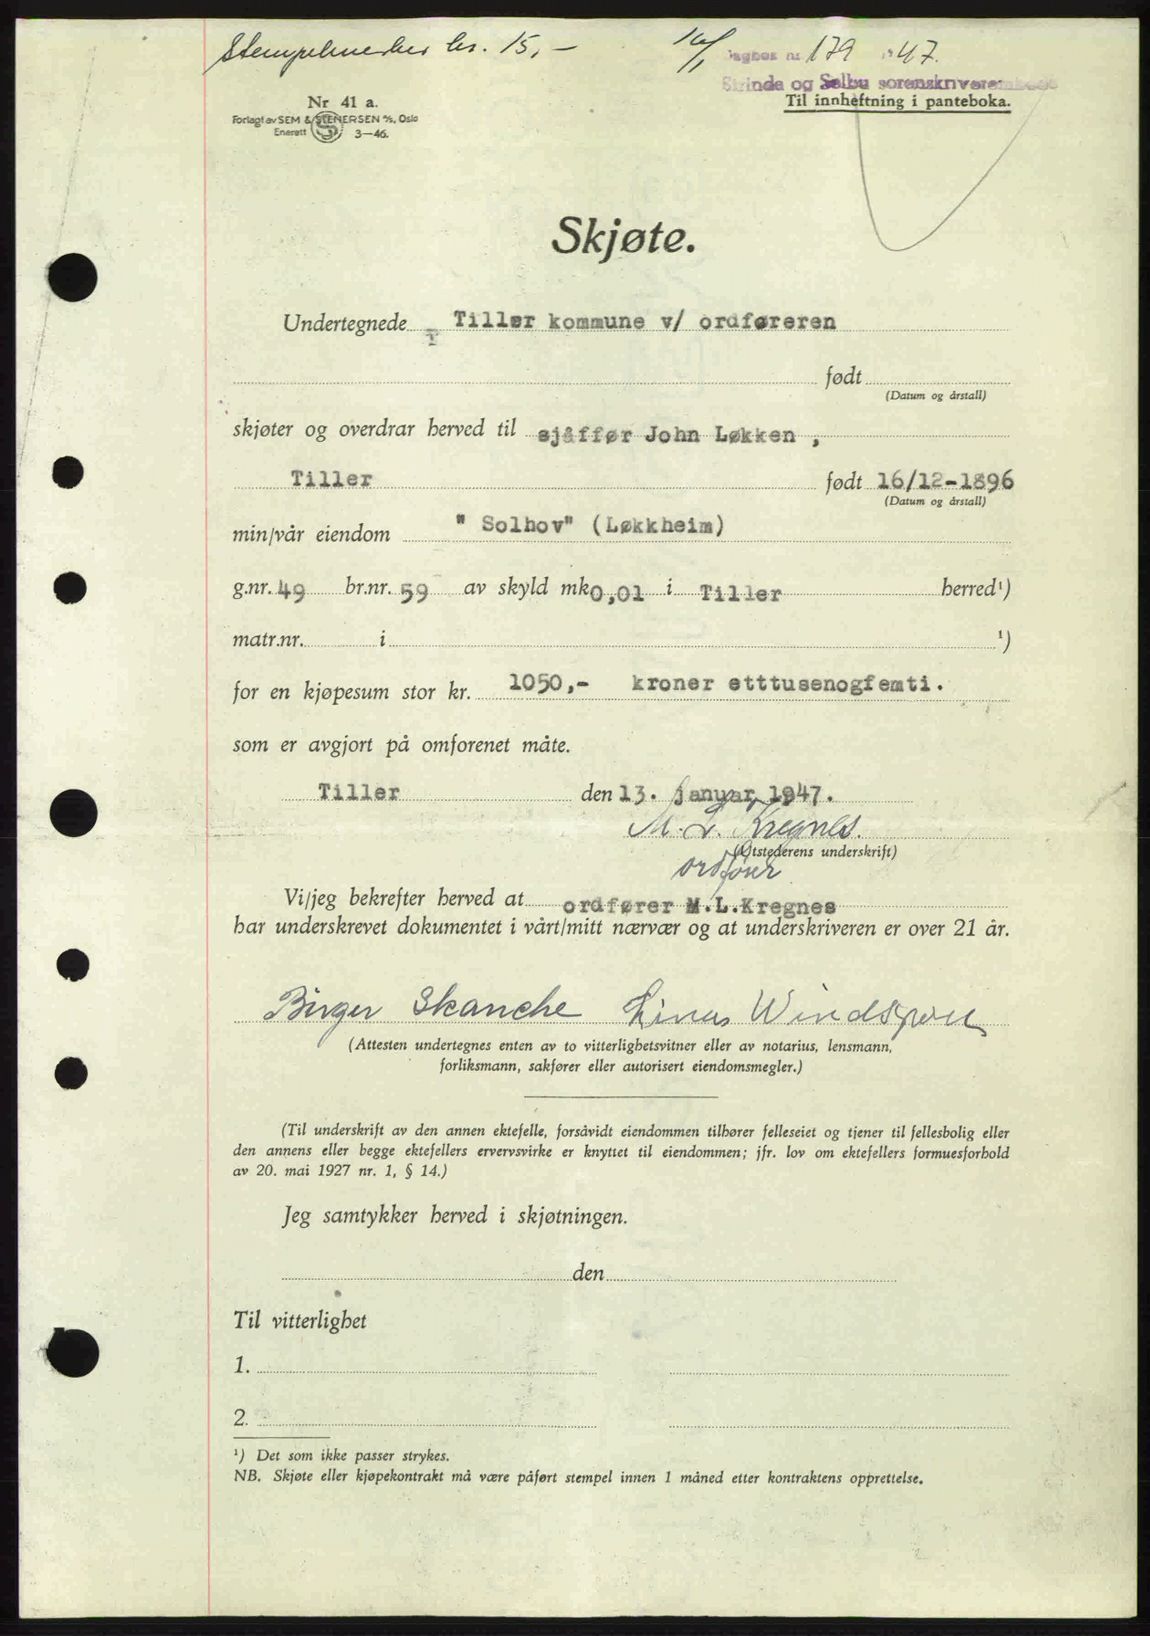 Stempelmerker kr. 15,- 16/1 Dagbok nr 179 1947.
Strinda og Selbu sorenskriverembede
Nr 41 a. Til innheftning i panteboka.
Forlagt av SEM & STENERSEN A/S, Oslo
Enerett S 3—46.
Skjøte.
Undertegnede Tiller kommune v/ ordføreren
født
(Datum og årstall)
skjøter og overdrar herved til sjåffør John Løkken ,
Tiller født 16/12-1896
(Datum og årstall)
min/vår eiendom " Solhov" (Løkkheim)
g.nr. 49 br.nr. 59 av skyld mk 0,01 i Tiller herred¹)
matr.nr. i ¹)
for en kjøpesum stor kr. 1050,- kroner etttusenogfemti.
som er avgjort på omforenet måte.
Tiller den 13. januar 1947.
M. L. Kregnes.
(Utstederens underskrift)
ordfører
Vi/jeg bekrefter herved at ordfører M.L.Kregnes
har underskrevet dokumentet i vårt/mitt nærvær og at underskriveren er over 21 år.
Birger Skanche
(Attesten undertegnes enten av to vitterlighetsvitner eller av notarius, lensmann,
forliksmann, sakfører eller autorisert eiendomsmegler.)
(Til underskrift av den annen ektefelle, forsåvidt eiendommen tilhører felleseiet og tjener til fellesbolig eller
den annens eller begge ektefellers ervervsvirke er knyttet til eiendommen; jfr. lov om ektefellers formuesforhold
av 20. mai 1927 nr. 1, § 14.)
Jeg samtykker herved i skjøtningen.
den
Til vitterlighet
1.
2.
¹) Det som ikke passer strykes.
NB. Skjøte eller kjøpekontrakt må være påført stempel innen 1 måned etter kontraktens opprettelse.